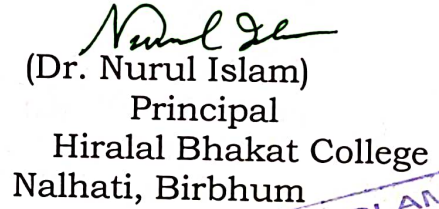 (Dr. Nurul Islam)
Principal
Hiralal Bhakat College
Nalhati, Birbhum